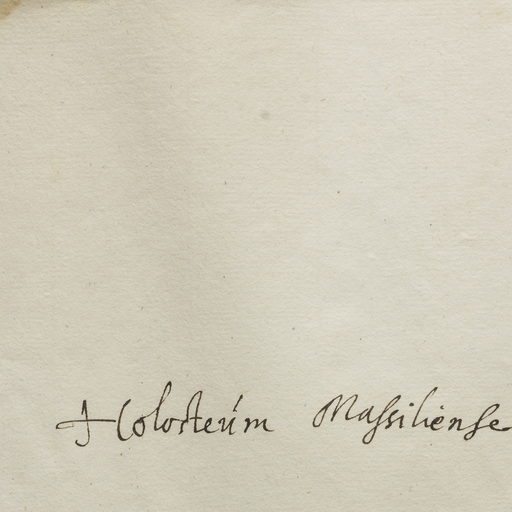 Holosteum Massiliense